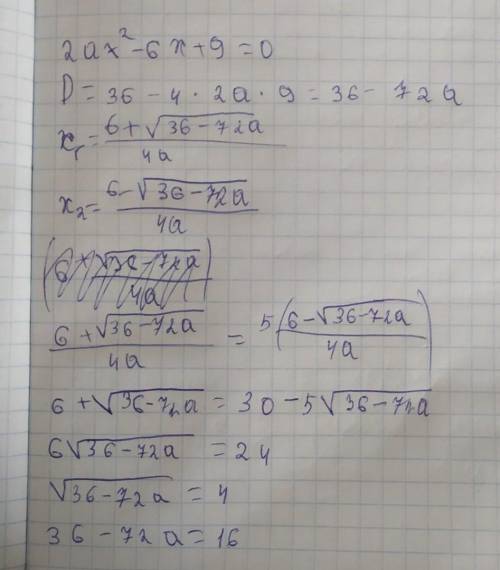 2ax²-6x+9=0
D=36-4·2a·9=36-72a
x₁=(6+√(36-72a))/(4a)
x₂=(6-√(36-72a))/(4a)
(6+√(36-72a))/(4a) = 5((6-√(36-72a))/(4a))
6+√(36-72a)=30-5√(36-72a)
6√(36-72a)=24
√(36-72a)=4
36-72a=16